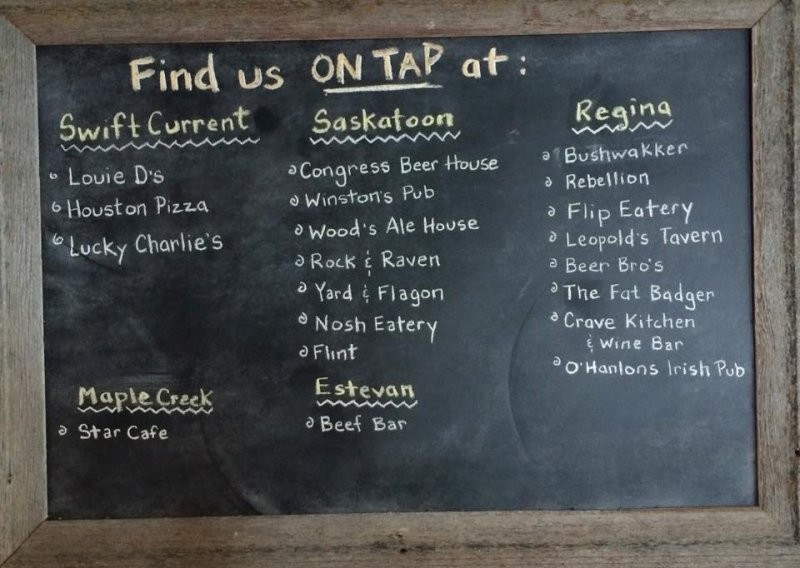 Find us ON TAP at:
Swift Current
Louie D's
Houston Pizza
Lucky Charlie's
Maple Creek
Star Cafe
Saskatoon
Congress Beer House
Winston's Pub
Wood's Ale House
Rock & Raven
Yard & Flagon
Nosh Eatery
Flint
Estevan
Beef Bar
Regina
Bushwakker
Rebellion
Flip Eatery
Leopold's Tavern
Beer Bro's
The Fat Badger
Crave Kitchen
& Wine Bar
O'Hanlons Irish Pub